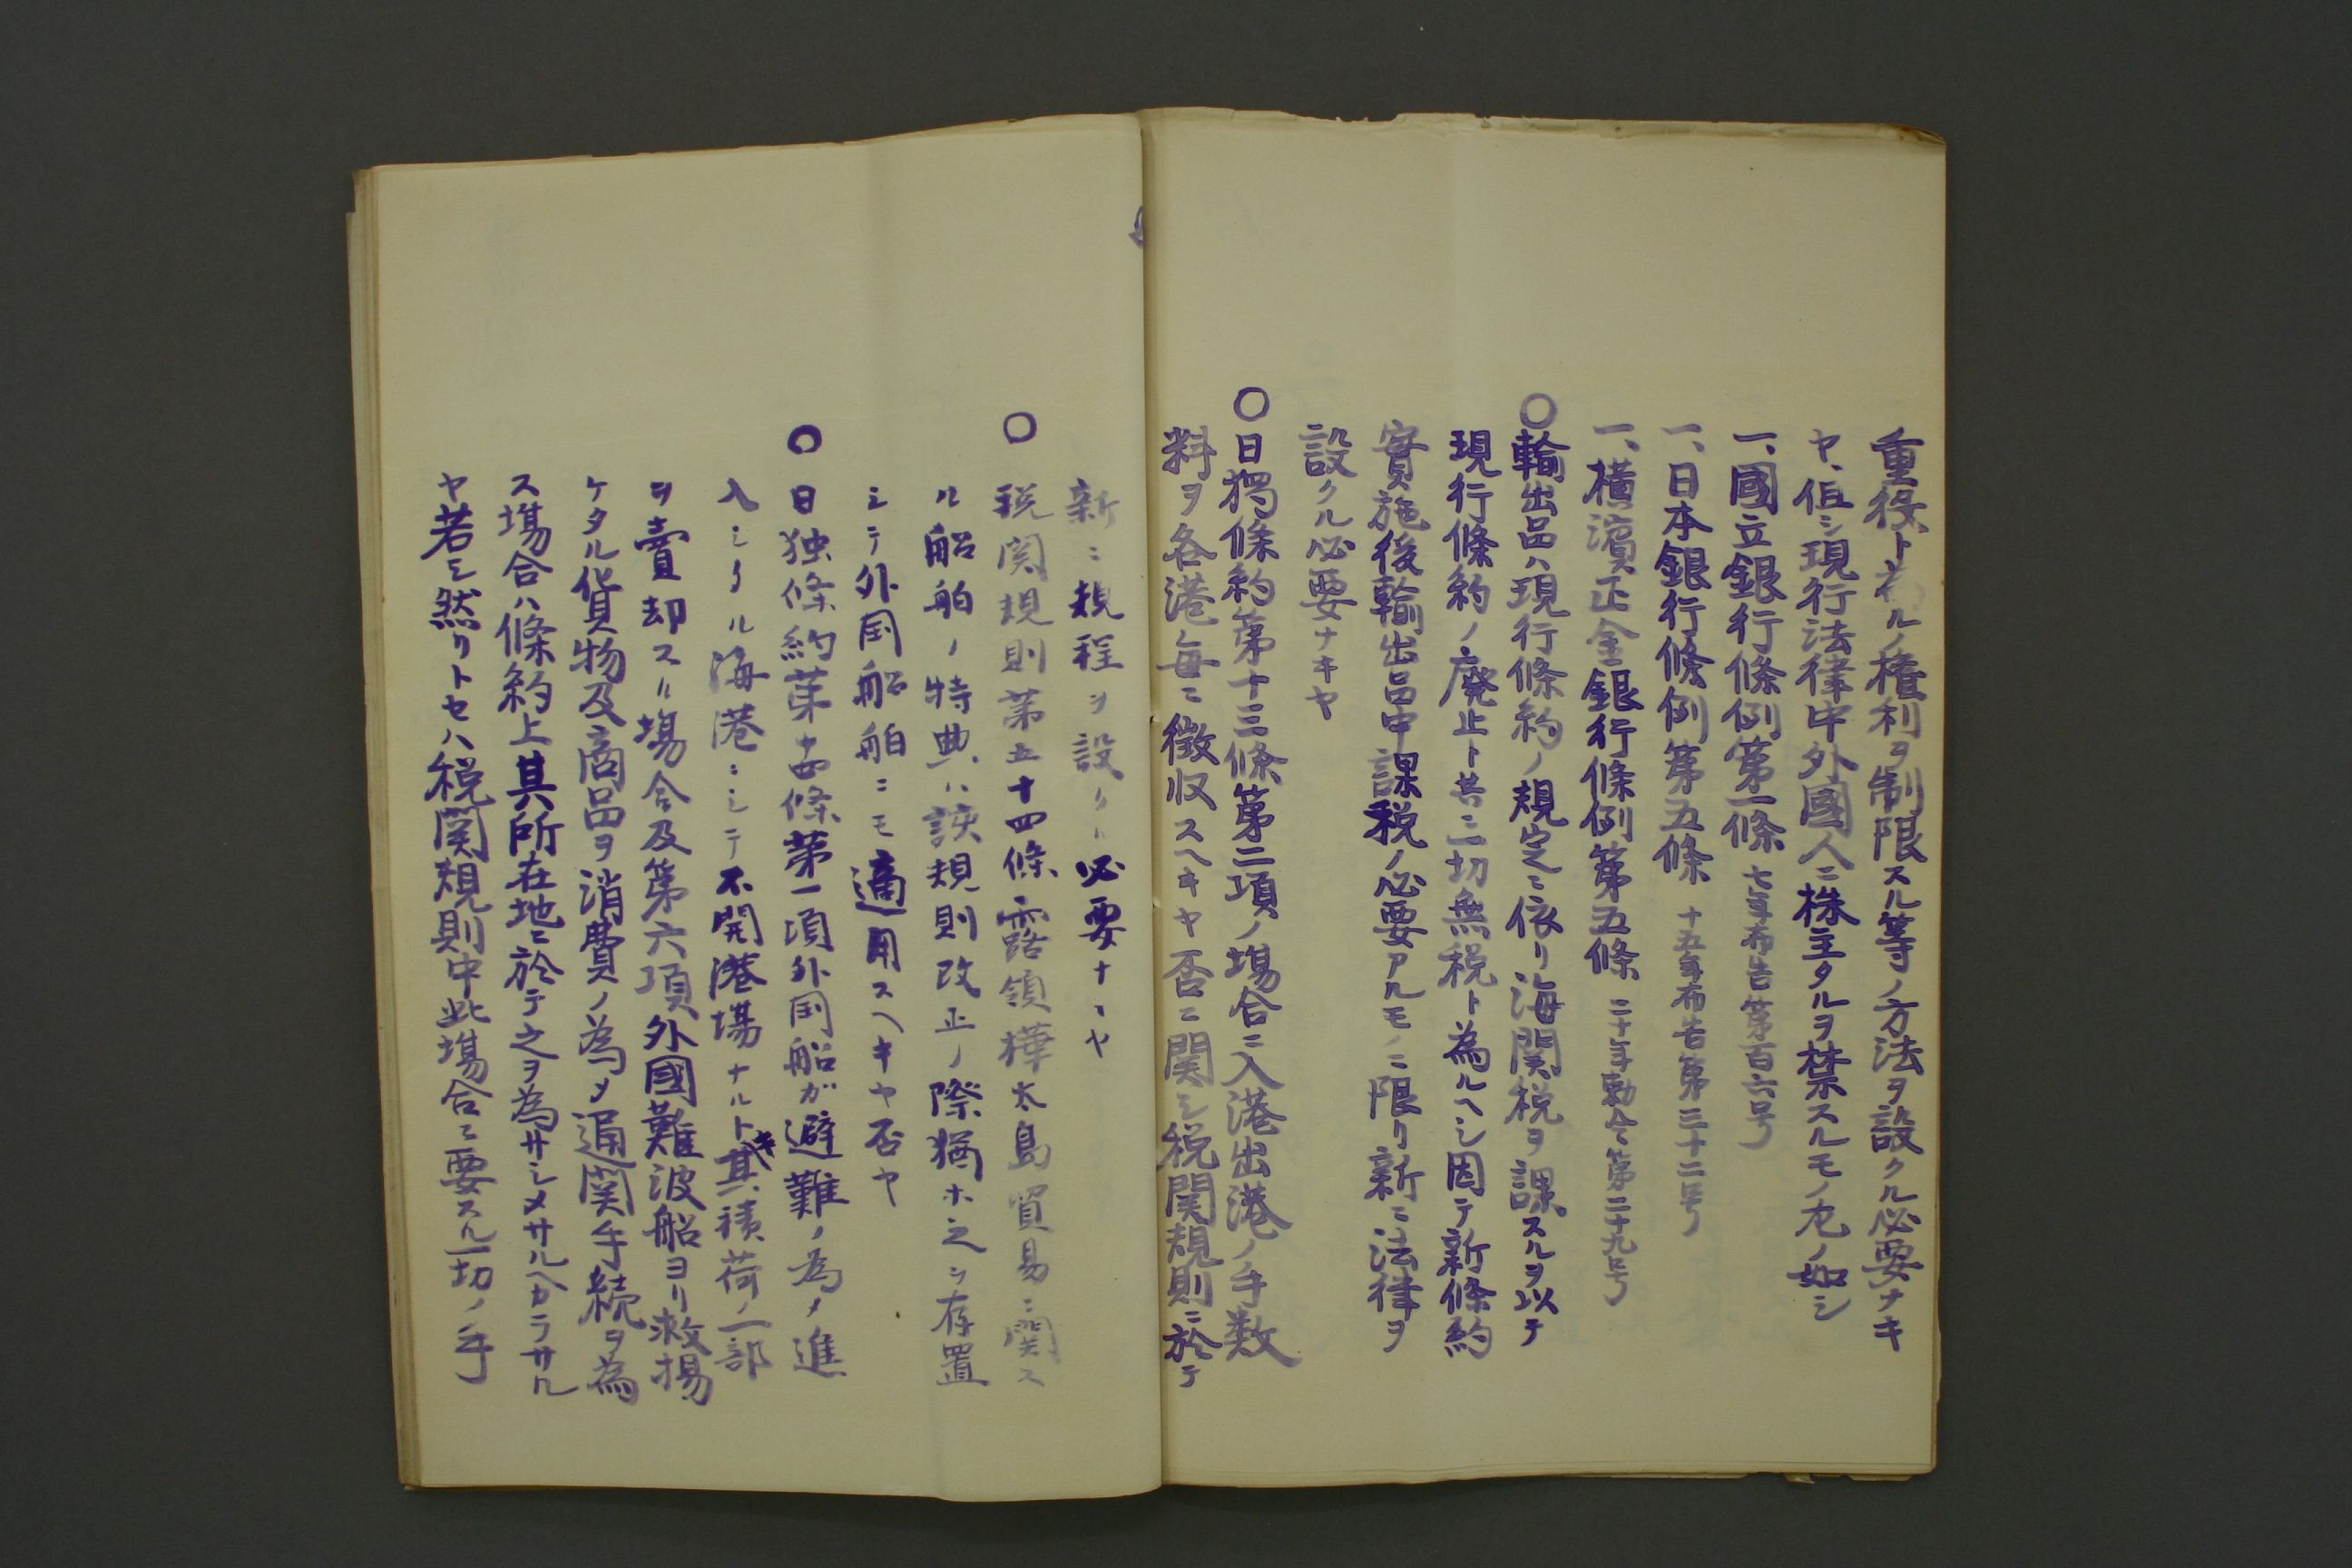 重役ト為ルノ権利ヲ制限スル等ノ方法ヲ設クル必要ナキ
ヤ、但シ現行法律中外國人ニ株主タルヲ禁スルモノ左ノ如シ
一、國立銀行條例第一條 七年布告第百六号
一、日本銀行條例第五條 十五年布告第三十二号
一、橫濱正金銀行條例第五條 二十年勅令第二十九号
○輸出品ハ現行條約ノ規定ニ依リ海関税ヲ課スルヲ以テ
現行條約ノ廃止ト共ニ一切無税ト為ルヘシ因テ新條約
實施後輸出品中課税ノ必要アルモノニ限リ新ニ法律ヲ
設クル必要ナキヤ
○日獨條約第十三條第二項ノ塲合ニ入港出港ノ手数
料ヲ各港毎ニ徴収スヘキヤ否ニ関シ税関規則ニ於テ
新ニ規程ヲ設クル必要ナキヤ
○税関規則第五十四條露領樺太島貿易ニ関ス
ル船舶ノ特典ハ該規則改正ノ際猶ホ之ヲ存置
シテ外国船舶ニモ適用スヘキヤ否ヤ
○日独條約第十四條第一項外国船ガ避難ノ為メ進
入シタル海港ニシテ不開港塲ナルトキ其積荷ノ一部
ヲ賣却スル塲合及第六項外國難破船ヨリ救揚
ケタル貨物及商品ヲ消費ノ為メ通関手続ヲ為
ス塲合ハ條約上其所在地ニ於テ之ヲ為サシメサルヘカラサル
ヤ若シ然リトセハ税関規則中此塲合ニ要スル一切ノ手